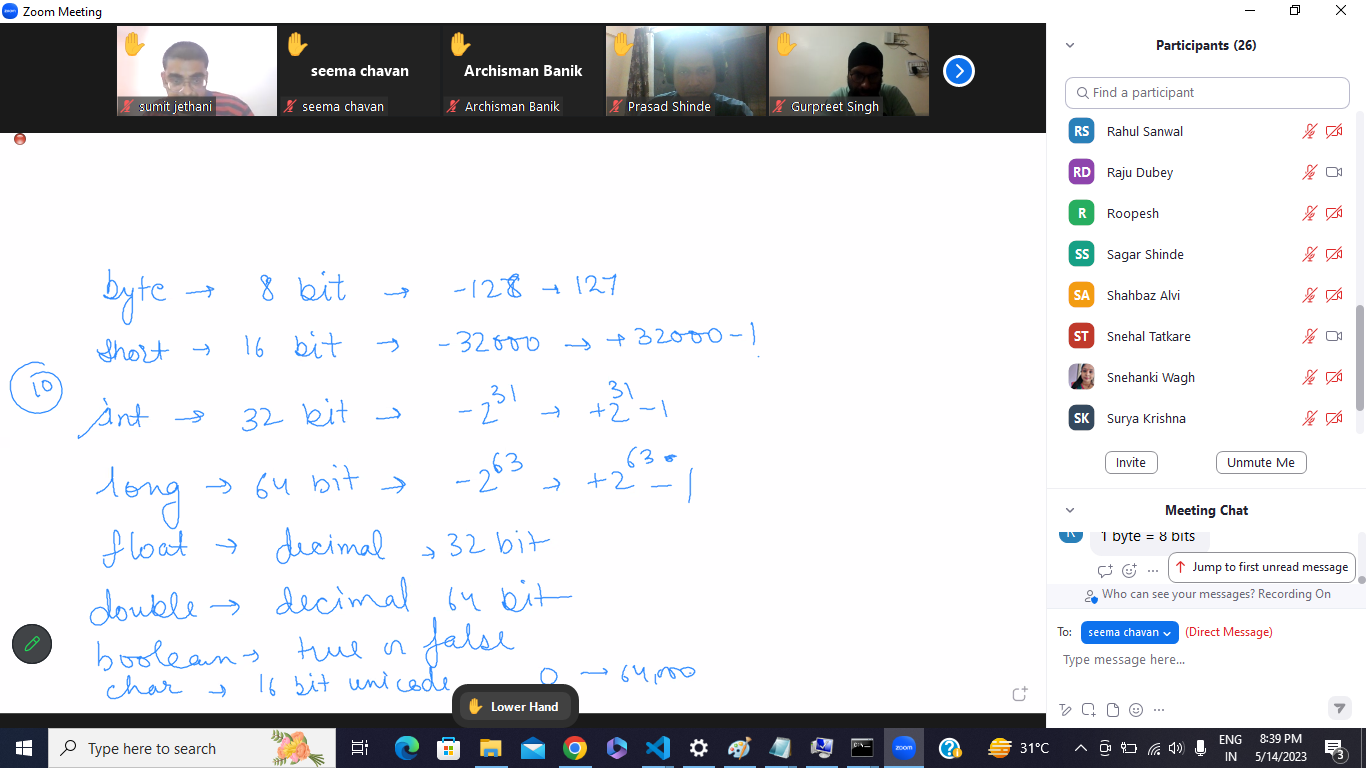 Zoom Meeting
seema chavan
Archisman Banik
sumit jethani
seema chavan
Archisman Banik
Prasad Shinde
Gurpreet Singh
byte → 8 bit → -128 → 127
short → 16 bit → -32000 → +32000-1
10
int → 32 bit → -2^31 → +2^31-1
long → 64 bit → -2^63 → +2^63-1
float → decimal → 32 bit
double → decimal 64 bit
boolean → true or false
char → 16 bit unicode 0 → 64,000
Lower Hand
Participants (26)
Find a participant
RS Rahul Sanwal
RD Raju Dubey
R Roopesh
SS Sagar Shinde
SA Shahbaz Alvi
ST Snehal Tatkare
Snehanki Wagh
SK Surya Krishna
Invite
Unmute Me
Meeting Chat
1 byte = 8 bits
Jump to first unread message
Who can see your messages? Recording On
To: seema chavan (Direct Message)
Type message here...
Type here to search
zoom
31°C
ENG
IN
8:39 PM
5/14/2023
3